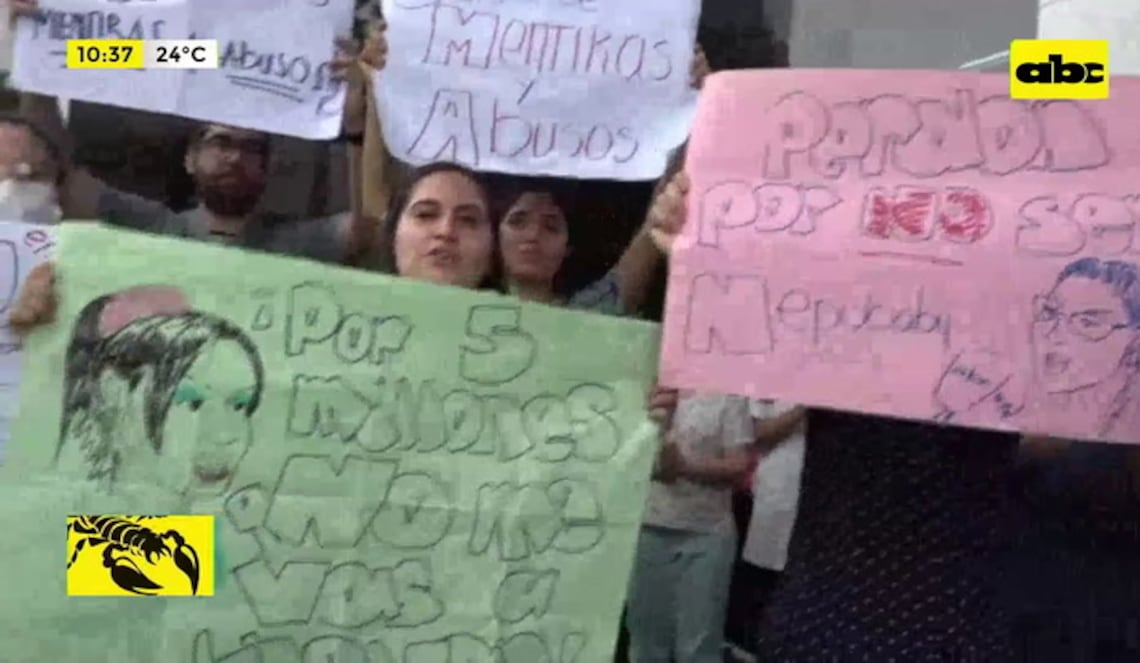 10:37 24°C
abc
MENTIRAS
Abusos
Mentiras
y
Abusos
Perdon
por NO se
Nepukaby
¡Por 5
millones
No me
vas a